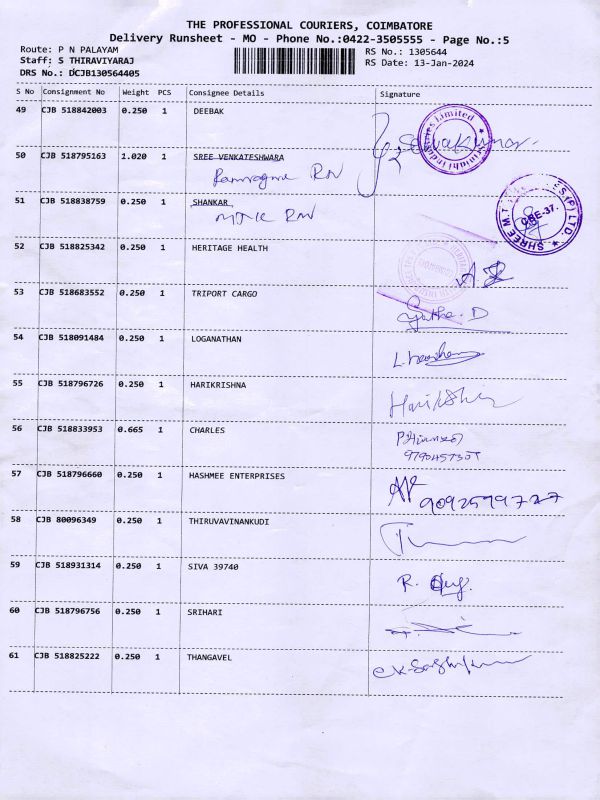 THE PROFESSIONAL COURIERS, COIMBATORE
Delivery Runsheet - MO - Phone No.:0422-3505555 - Page No.:5
Route: P N PALAYAM RS No.: 1305644
Staff: S THIRAVIYARAJ RS Date: 13-Jan-2024
DRS No.: DCJB130564405
S No Consignment No Weight PCS Consignee Details Signature
49 CJB 518842003 0.250 1 DEEBAK
50 CJB 518795163 1.020 1 SREE VENKATESHWARA
51 CJB 518838759 0.250 1 SHANKAR
52 CJB 518825342 0.250 1 HERITAGE HEALTH
53 CJB 518683552 0.250 1 TRIPORT CARGO
54 CJB 518091484 0.250 1 LOGANATHAN
55 CJB 518796726 0.250 1 HARIKRISHNA
56 CJB 518833953 0.665 1 CHARLES
57 CJB 518796660 0.250 1 HASHMEE ENTERPRISES
9092599727
58 CJB 80096349 0.250 1 THIRUVAVINANKUDI
59 CJB 518931314 0.250 1 SIVA 39740
60 CJB 518796756 0.250 1 SRIHARI
61 CJB 518825222 0.250 1 THANGAVEL